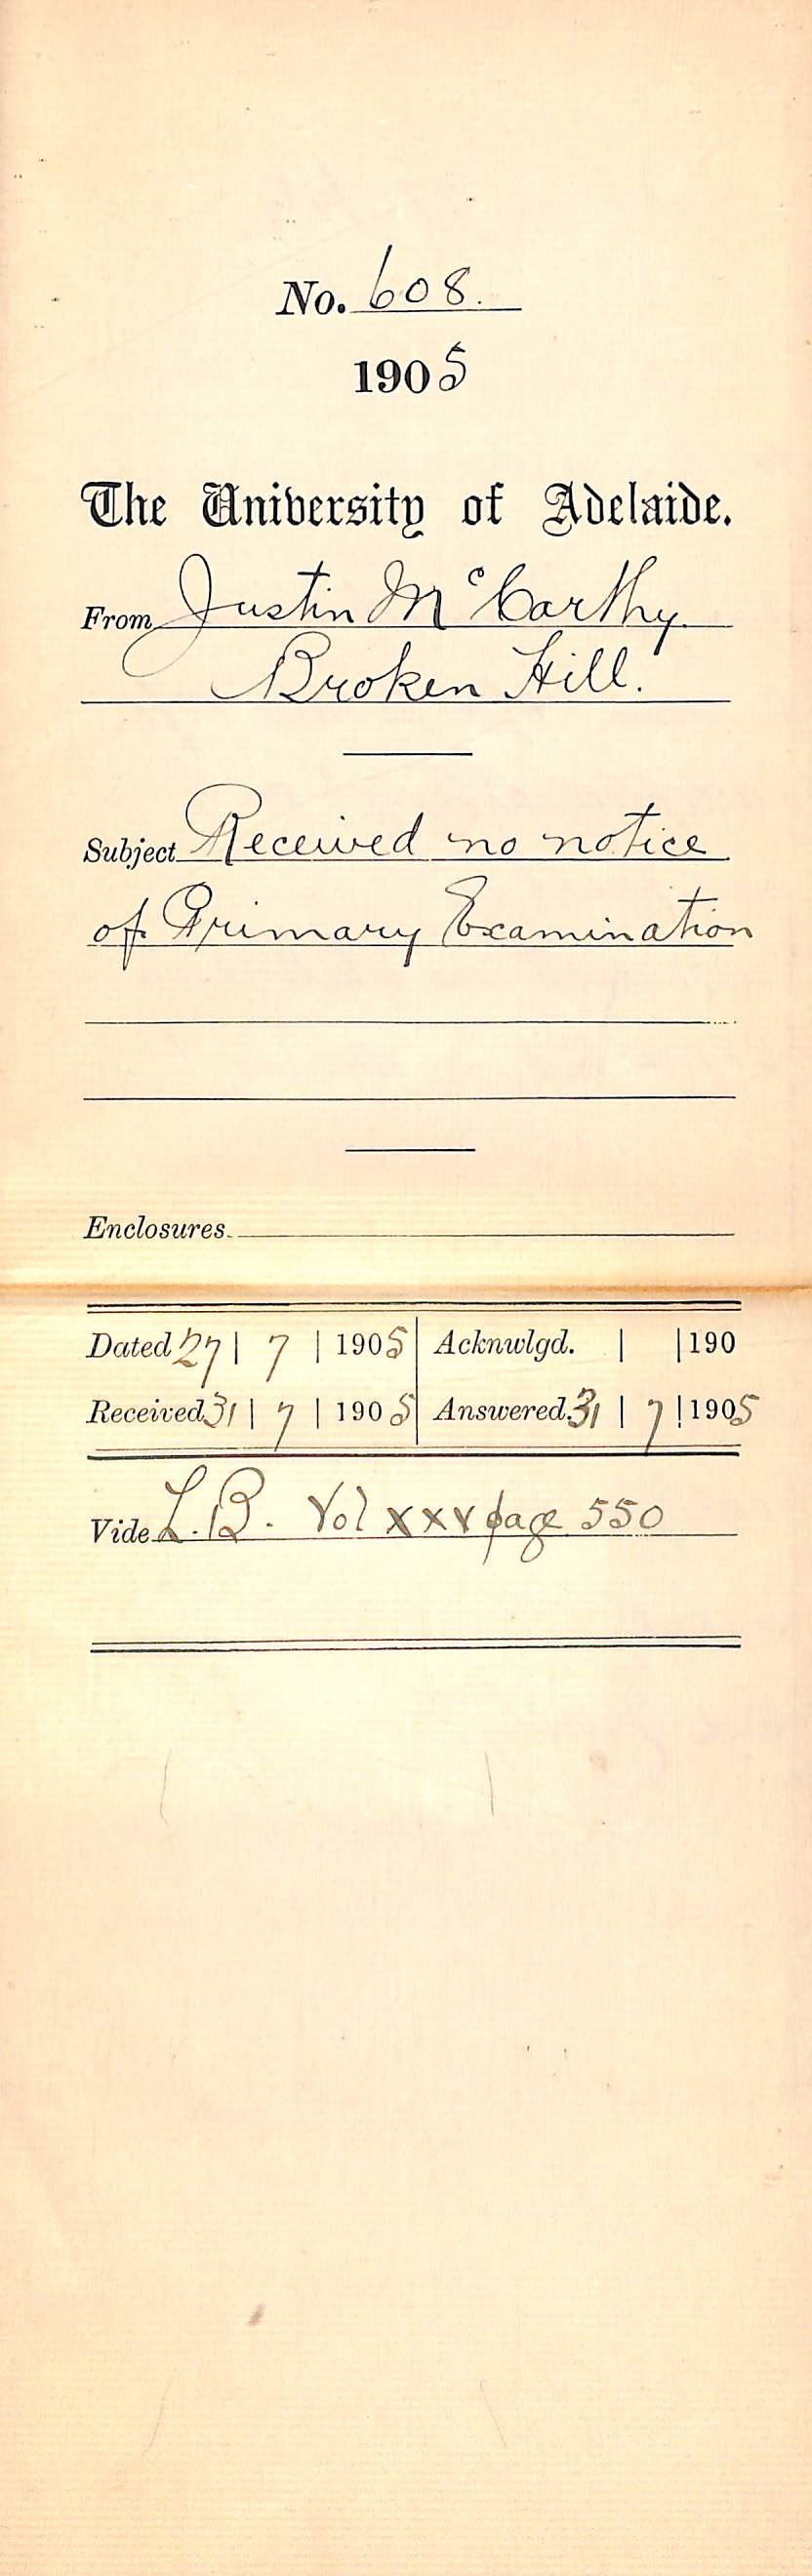 No. 608.
1905
The University of Adelaide.
From Justin McCarthy.
Broken Hill.
Subject Received no notice
of Primary Examination
Enclosures.
Dated 27 | 7 | 1905 Acknwlgd. | | 190
Received 31 | 7 | 1905 Answered. 31 | 7 | 1905
Vide L.B. Vol xxv page 550